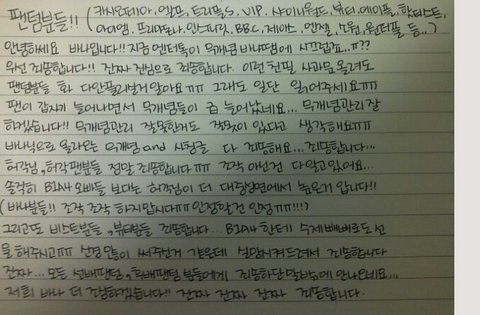 팬덤분들!! (카시오페아, 엘프, 트리플S, VIP, 샤이니월드, 뷰티, 에이플, 핫티스트,
아이엠, 프리마돈나, 인스피릿, BBC, 제이스, 엔젤, 소원, 원더풀 등..)
안녕하세요 바나입니다!! 지금 엔터톡이 무개념 바나땜에 시끄럽죠..ㅠ??
우선 죄송합니다!! 진짜 진심으로 죄송합니다. 이런 천필 사과문 올려도
팬덤분들 화 다안풀리실거 알아요ㅠㅠ 그래도 일단 읽어주세요ㅠㅠ
팬이 갑자기 늘어나면서 무개념들이 좀 늘어났네요... 무개념관리 잘
하겠습니다!! 무개념관리 잘못한거도 잘못이 있다고 생각해요ㅠㅠ
바나님으로 올라온 무개념 and 사칭글 다 죄송해요... 죄송합니다...
허각님, 허각팬분들 정말 죄송합니다ㅠㅠ 조작 아닌건 다알고 있어요...
솔직히 B1A4 오빠들 보다는 허각님이 더 대중성면에서 높은거 압니다!!
(바나분들!! 조작 조작 하지맙시다ㅠㅠ 인정할건 인정ㅠㅠ!!!)
그리고또 비스트분들, 뷰티분들 죄송합니다... B1A4 한테 수제 빼빼로도 선
물 해주시고ㅠㅠ 실망 많이 써주신거 같은데 실망시켜드려서 죄송합니다
진짜... 모든 선배팬덤, 후배팬덤 분들에게 죄송하단 말밖에 안나오네요...
저희 바나 더 조심하겠습니다!! 진짜 진짜 진짜 죄송합니다